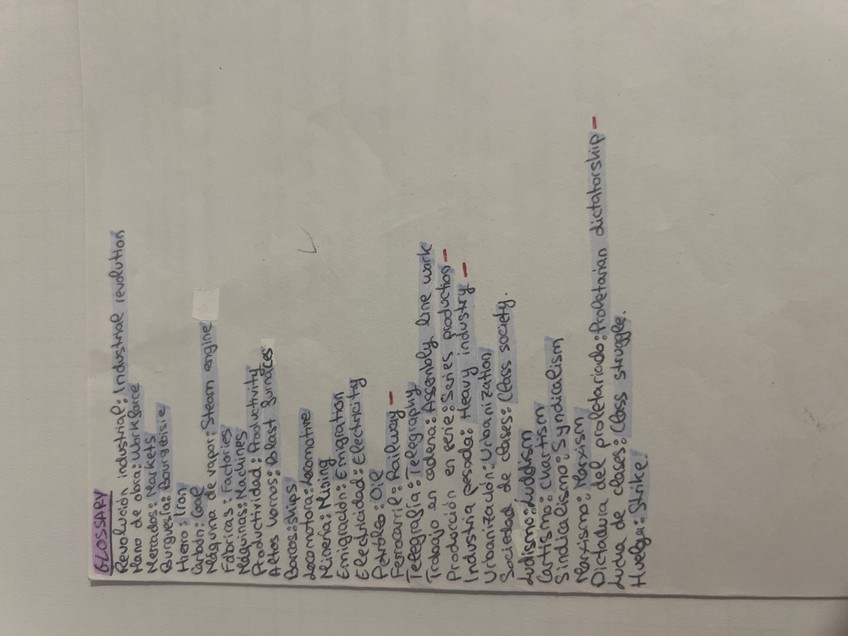 GLOSSARY
Revolución industrial: Industrial revolution
Mano de obra: Workforce
Mercados: Markets
Burguesía: Bourgeisie
Hierro: Iron
Carbón: Coal
Máquina de vapor: Steam engine
Fábricas: Factories
Máquinas: Machines
Productividad: Productivity
Altos hornos: Blast furnaces
Barcos: ships
Locomotora: Locomotive
Minería: Mining
Emigración: Emigration
Electricidad: Electricity
Petróleo: Oil
Ferrocarril: Railway –
Telegrafía: Telegraphy
Trabajo en cadena: Assembly line work
Producción en serie: Series production –
Industria pesada: Heavy industry –
Urbanización: Urbanization
Sociedad de clases: Class society.
Ludismo: Luddism
Cartismo: Chartism
Sindicalismo: Syndicalism
Marxismo: Marxism
Dictadura del proletariado: Proletarian dictatorship –
Lucha de clases: Class struggle.
Huelga: Strike.